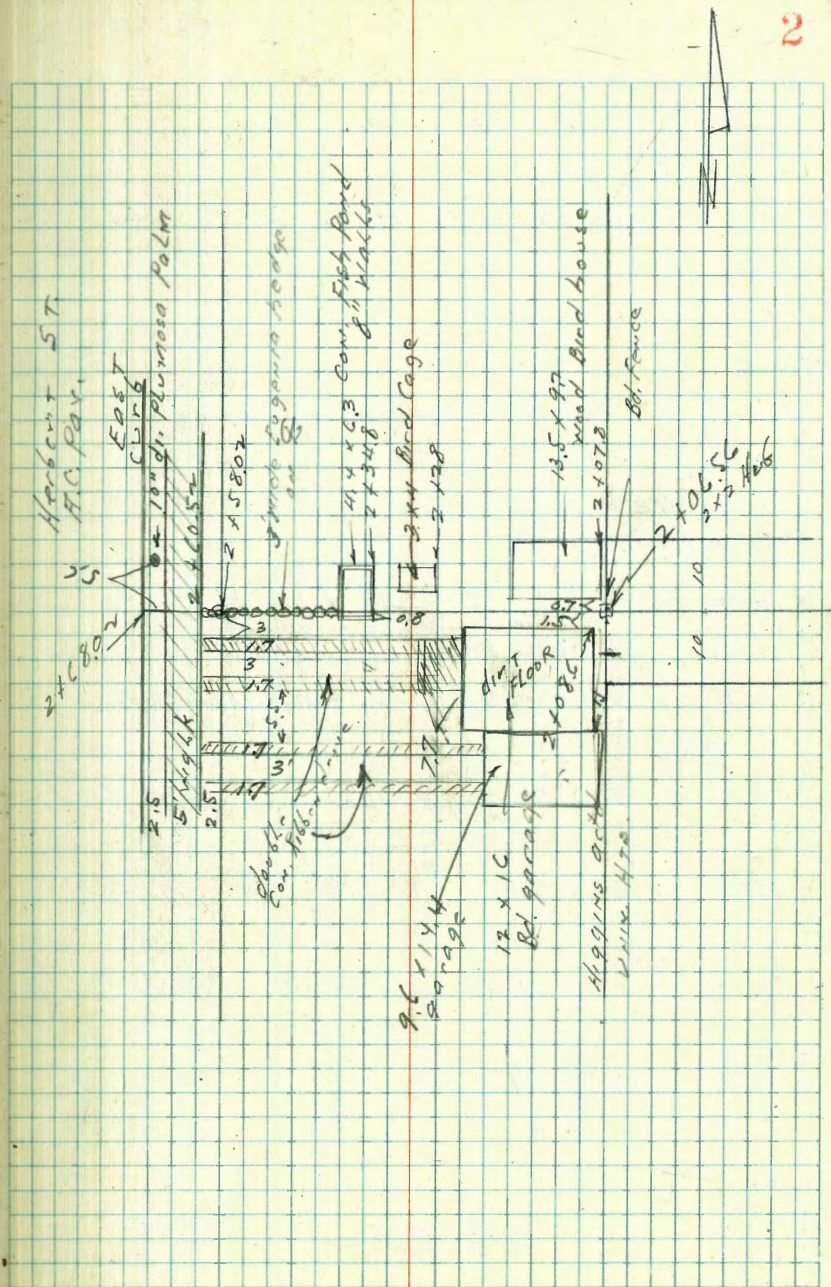 2
Herbert ST.
A.C. Pav.
EAST
Curb
10" di. Plumosa Palm
2+68.02
2+60.52
2+58.02
Eugenia hedge
on
4.4 x 6.3 Con. Fish Pond
8" Walls
2+34.8
0.8
3x4 Bird Cage
2+28
13.5 x 9.7
Wood Bird house
2+07.8
Bd. Fence
2+06.56
2x2 Hub
2.5
5' Walk
2.5
3
1.7
3'
1.7
5.5
1.7
3'
1.7
double
Con. Ribbon drive
7.7
dirt
FLOOR
2+08.6
0.7
1.5
10
10
9.6 x 14.4
garage
12 x 16
Bd. garage
Higgins
Univ. Hts.
N